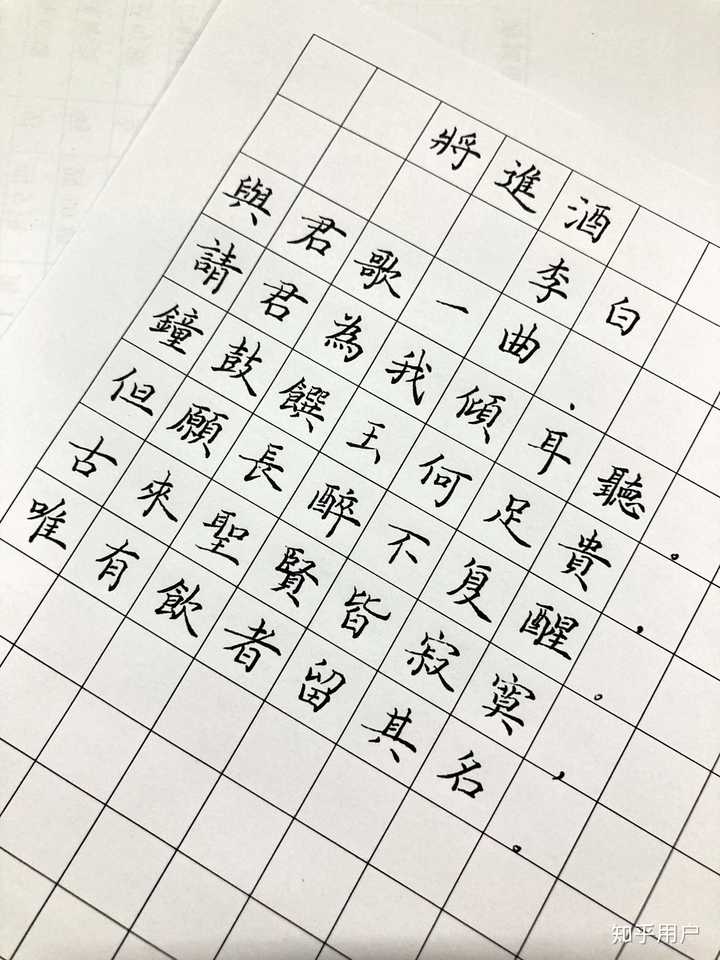 將進酒
李白
與君歌一曲、
請君為我傾耳聽。
鐘鼓饌玉何足貴,
但願長醉不复醒。
古來聖賢皆寂寞,
唯有飲者留其名。
知乎用户